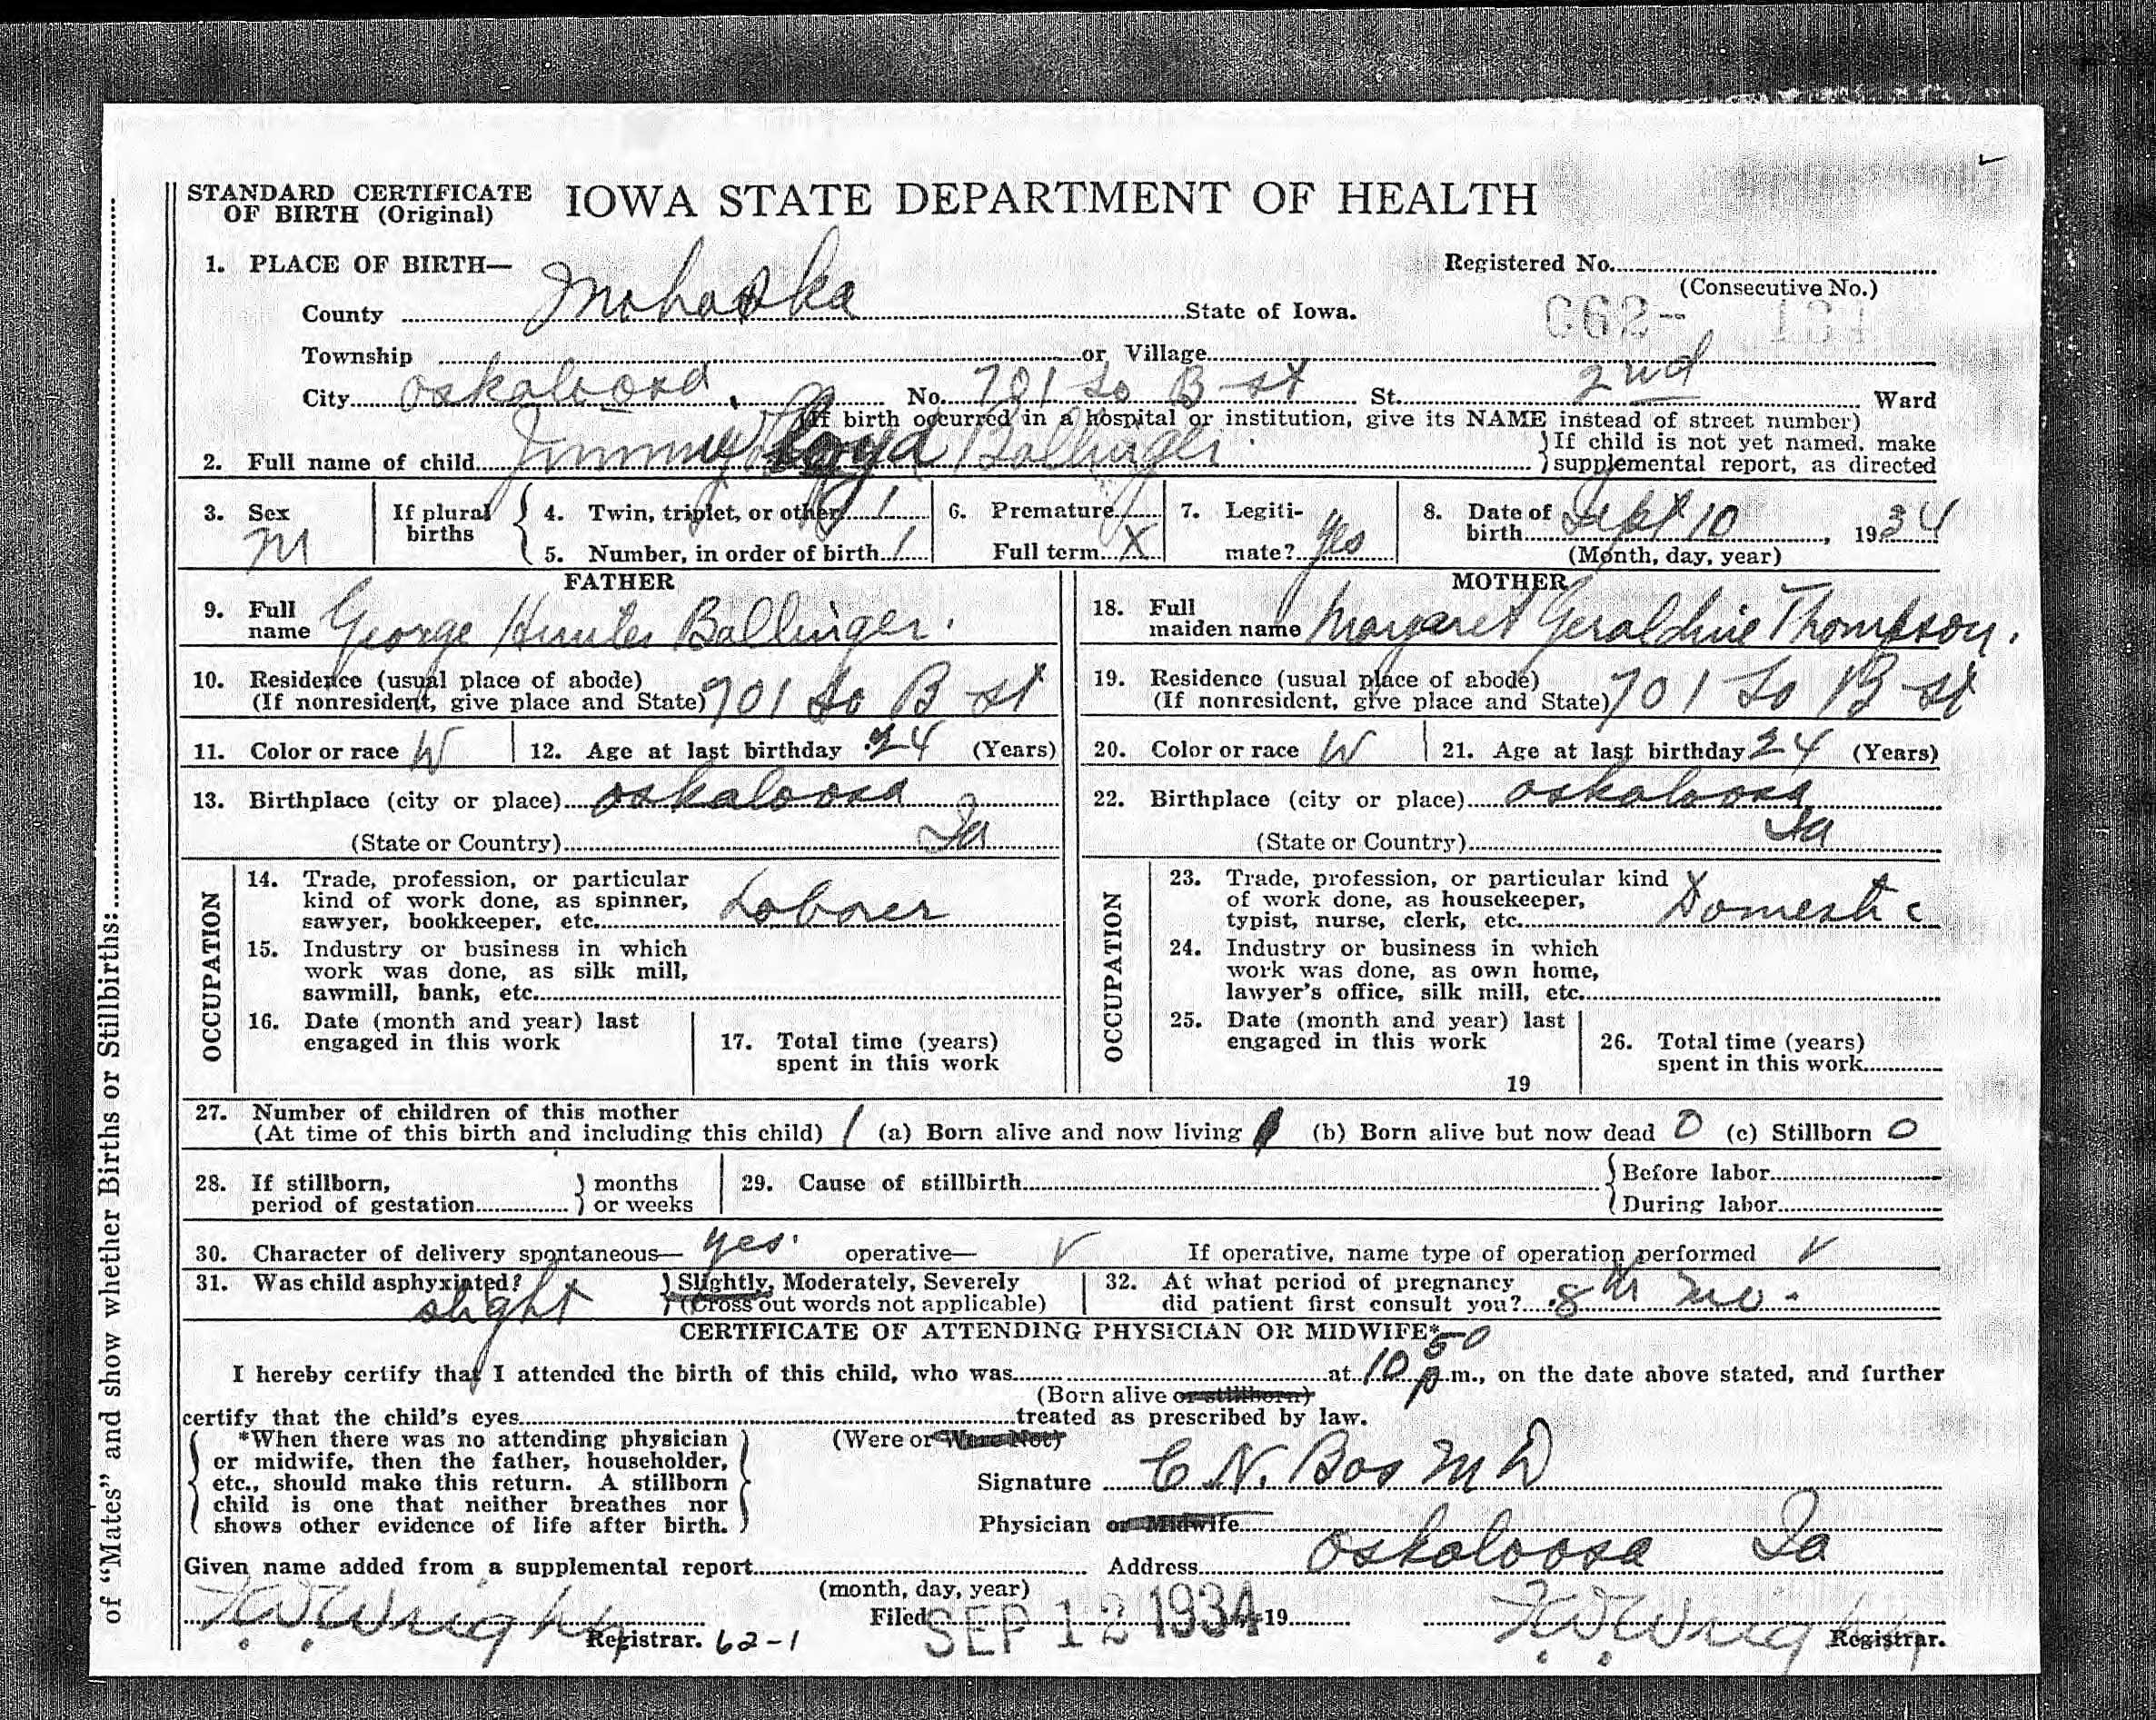 STANDARD CERTIFICATE OF BIRTH (Original) IOWA STATE DEPARTMENT OF HEALTH
1. PLACE OF BIRTH— Registered No.
(Consecutive No.)
County Mahaska State of Iowa. C62-
Township or Village
City Oskaloosa, No. 701 So B st St. 2nd Ward
(If birth occurred in a hospital or institution, give its NAME instead of street number)
2. Full name of child Jimmy Loyd Ballinger {If child is not yet named, make supplemental report, as directed
3. Sex M If plural births { 4. Twin, triplet, or other 1 6. Premature 7. Legiti- 8. Date of birth Sept 10, 1934
5. Number, in order of birth 1 Full term X mate? yes (Month, day, year)
FATHER MOTHER
9. Full name George Hunter Ballinger. 18. Full maiden name Margaret Geraldine Thompson.
10. Residence (usual place of abode) 19. Residence (usual place of abode)
(If nonresident, give place and State) 701 So B st (If nonresident, give place and State) 701 So B st
11. Color or race W 12. Age at last birthday 24 (Years) 20. Color or race W 21. Age at last birthday 24 (Years)
13. Birthplace (city or place) Oskaloosa 22. Birthplace (city or place) Oskaloosa
(State or Country) Ia (State or Country) Ia
OCCUPATION OCCUPATION
14. Trade, profession, or particular 23. Trade, profession, or particular kind
kind of work done, as spinner, of work done, as housekeeper,
sawyer, bookkeeper, etc. Laborer typist, nurse, clerk, etc. Domestic
15. Industry or business in which 24. Industry or business in which
work was done, as silk mill, work was done, as own home,
sawmill, bank, etc. lawyer's office, silk mill, etc.
16. Date (month and year) last 25. Date (month and year) last
engaged in this work 17. Total time (years) engaged in this work 26. Total time (years)
spent in this work 19 spent in this work
27. Number of children of this mother
(At time of this birth and including this child) 1 (a) Born alive and now living 1 (b) Born alive but now dead 0 (c) Stillborn 0
28. If stillborn, } months 29. Cause of stillbirth { Before labor
period of gestation } or weeks { During labor
30. Character of delivery spontaneous— yes. operative— If operative, name type of operation performed
31. Was child asphyxiated? slight } Slightly, Moderately, Severely 32. At what period of pregnancy
(Cross out words not applicable) did patient first consult you? 8th mo.
CERTIFICATE OF ATTENDING PHYSICIAN OR MIDWIFE*
I hereby certify that I attended the birth of this child, who was at 10 50 p.m., on the date above stated, and further
(Born alive or stillborn)
certify that the child's eyes treated as prescribed by law.
(Were or Were Not)
*When there was no attending physician
or midwife, then the father, householder,
etc., should make this return. A stillborn
child is one that neither breathes nor
shows other evidence of life after birth.
Signature C N. Bos M D
Physician or Midwife
Given name added from a supplemental report Address Oskaloosa Ia
(month, day, year)
F. W. Wright Registrar. 62-1 Filed SEP 12 1934 19 F. W. Wright Registrar.
of "Mates" and show whether Births or Stillbirths: